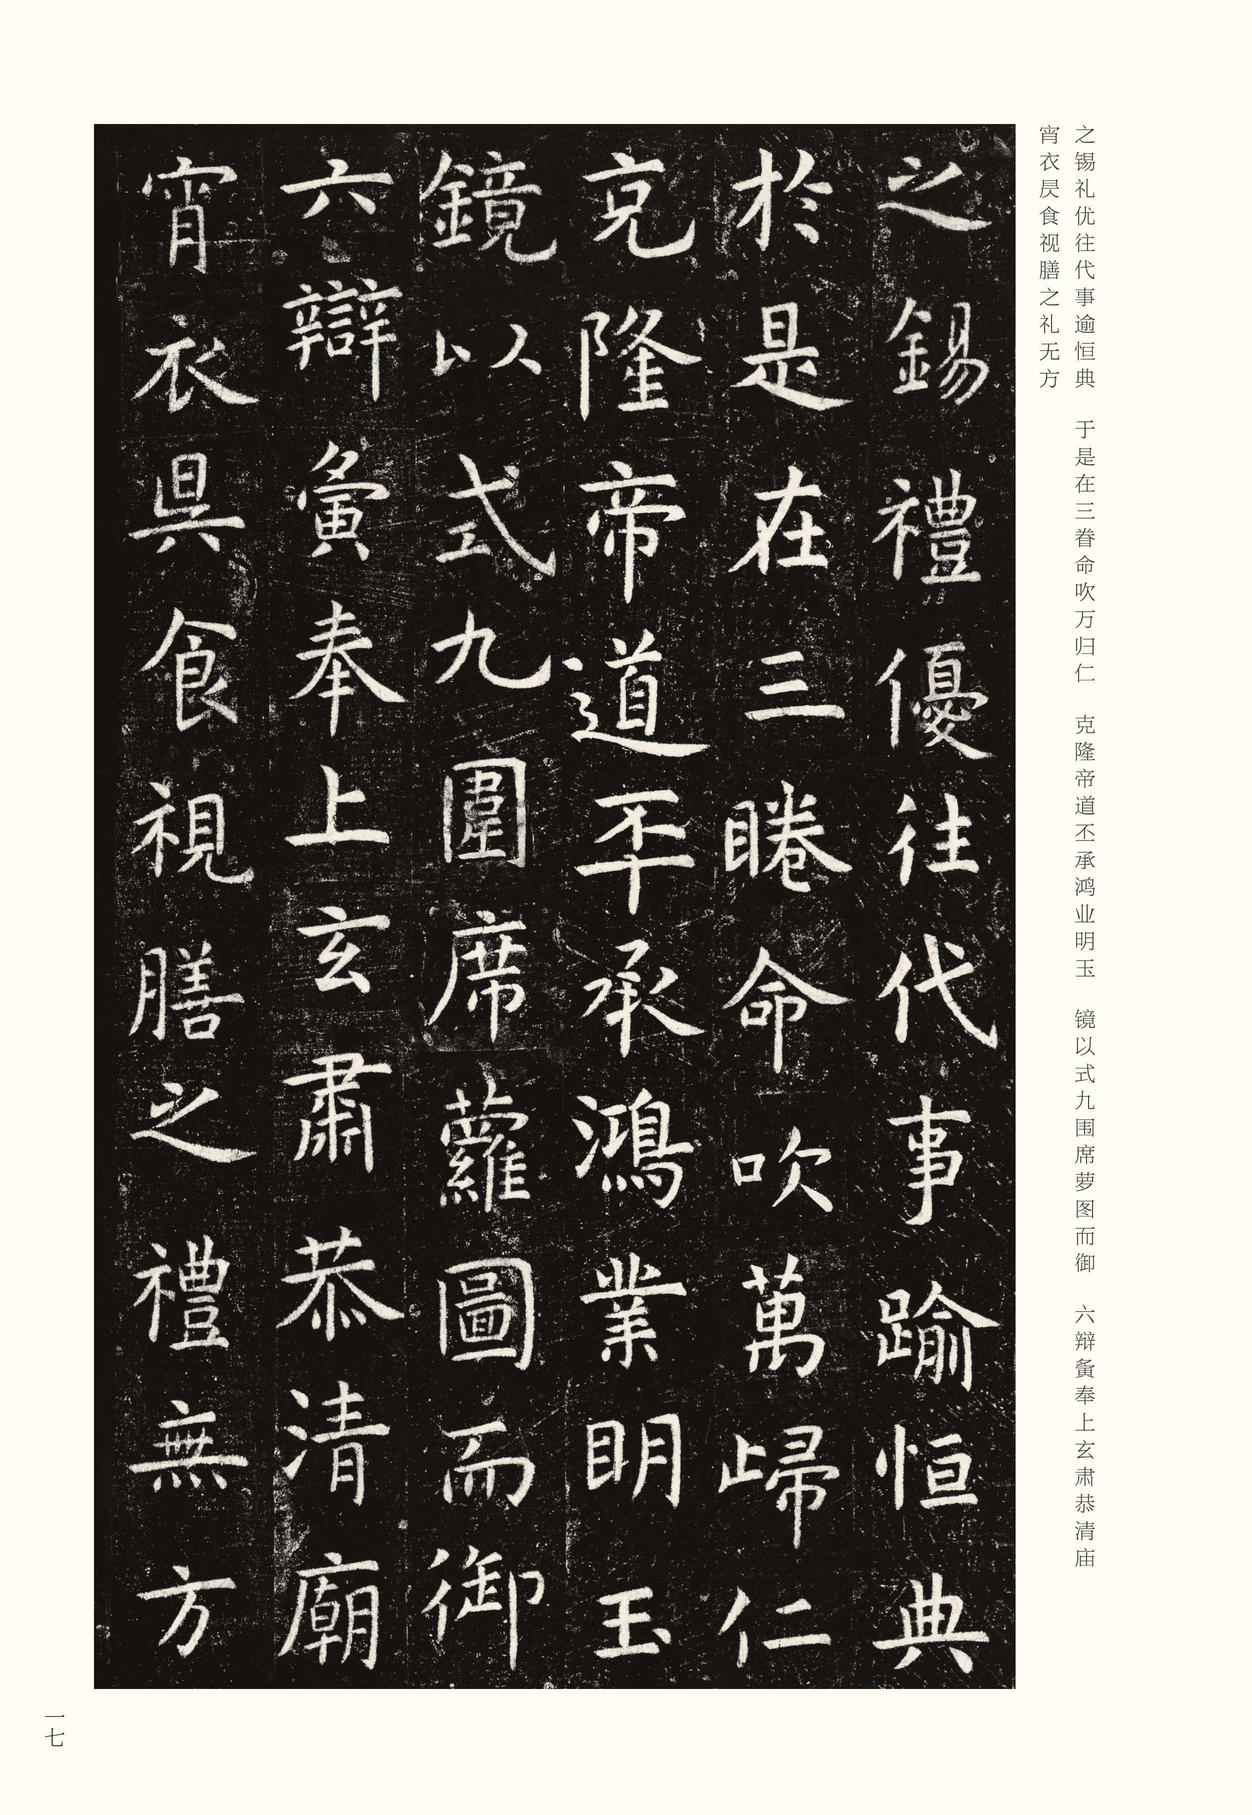 之锡礼优往代事逾恒典 于是在三眷命吹万归仁 克隆帝道丕承鸿业明玉 镜以式九围席萝图而御 六辩夤奉上玄肃恭清庙
宵衣昃食视膳之礼无方
之錫禮優往代事踰恒典
於是在三睠命吹萬歸仁
克隆帝道丕承鴻業明玉
鏡以式九圍席蘿圖而御
六辯夤奉上玄肅恭清廟
宵衣昃食視膳之禮無方
一七